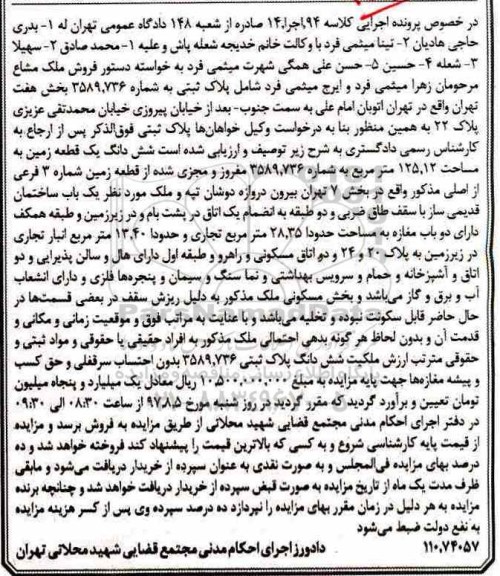 در خصوص پرونده اجرایی کلاسه ۹۴،اجرا،۱۴ صادره از شعبه ۱۴۸ دادگاه عمومی تهران له ۱- بدری
حاجی هادیان ۲- تینا میثمی فرد با وکالت خانم خدیجه شعله پاش و علیه ۱-محمد صادق ۲- سهیلا
۳- شعله ۴- حسین ۵- حسن علی همگی شهرت میثمی فرد به خواسته دستور فروش ملک مشاع
مرحومان زهرا میثمی فرد و ایرج میثمی فرد شامل پلاک ثبتی به شماره ۳۵۸۹,۷۳۶ بخش هفت
تهران واقع در تهران اتوبان امام علی به سمت جنوب- بعد از خیابان پیروزی خیابان محمدتقی عزیزی
پلاک ۲۲ به همین منظور بنا به درخواست وکیل خواهان‌ها پلاک ثبتی فوق‌الذکر پس از ارجاع به
کارشناس رسمی دادگستری به شرح زیر توصیف و ارزیابی شده است شش دانگ یک قطعه زمین به
مساحت ۱۲۵,۱۲ متر مربع به شماره ۳۵۸۹,۷۳۶ مفروز و مجزی شده از قطعه زمین شماره ۳ فرعی
از اصلی مذکور واقع در بخش ۷ تهران بیرون دروازه دوشان تپه و ملک مورد نظر یک باب ساختمان
قدیمی ساز با سقف طاق ضربی و دو طبقه به انضمام یک اتاق در پشت بام و در زیرزمین و طبقه همکف
دارای دو باب مغازه به مساحت حدودا ۲۸,۳۵ متر مربع تجاری و حدودا ۱۳,۴۰ متر مربع انبار تجاری
در زیرزمین به پلاک ۲۰ و ۲۴ و دو اتاق مسکونی و راهرو و طبقه اول دارای هال و سالن پذیرایی و دو
اتاق و آشپزخانه و حمام و سرویس بهداشتی و نما سنگ و سیمان و پنجره‌ها فلزی و دارای انشعاب
آب و برق و گاز می‌باشد و بخش مسکونی ملک مذکور به دلیل ریزش سقف در بعضی قسمت‌ها در
حال حاضر قابل سکونت نبوده و تخلیه می‌باشد و با عنایت به مراتب فوق و موقعیت زمانی و مکانی و
قدمت آن و بدون لحاظ هر گونه بدهی احتمالی ملک مذکور به افراد حقیقی یا حقوقی و مواد ثبتی و
حقوقی مترتب ارزش ملکیت شش دانگ پلاک ثبتی ۳۵۸۹,۷۳۶ بدون احتساب سرقفلی و حق کسب
و پیشه مغازه‌ها جهت پایه مزایده به مبلغ ۱۰,۵۰۰,۰۰۰,۰۰۰ ریال معادل یک میلیارد و پنجاه میلیون
تومان تعیین و برآورد گردید که مقرر گردید در روز شنبه مورخ ۹۷,۷,۲۸ از ساعت ۰۸:۳۰ الی ۰۹:۳۰
در دفتر اجرای احکام مدنی مجتمع قضایی شهید محلاتی از طریق مزایده به فروش برسد و مزایده
از قیمت پایه کارشناسی شروع و به کسی که بالاترین قیمت را پیشنهاد کند فروخته خواهد شد و ده
درصد بهای مزایده فی‌المجلس و به صورت نقدی به عنوان سپرده از خریدار دریافت می‌شود و مابقی
ظرف مدت یک ماه از تاریخ مزایده به صورت قبض سپرده از خریدار دریافت خواهد شد و چنانچه برنده
مزایده به هر دلیل در زمان مقرر بهای مزایده را نپردازد ده درصد سپرده وی پس از کسر هزینه مزایده
به نفع دولت ضبط می‌شود
۱۱۰,۷۴۰۵۷ دادورز اجرای احکام مدنی مجتمع قضایی شهید محلاتی تهران